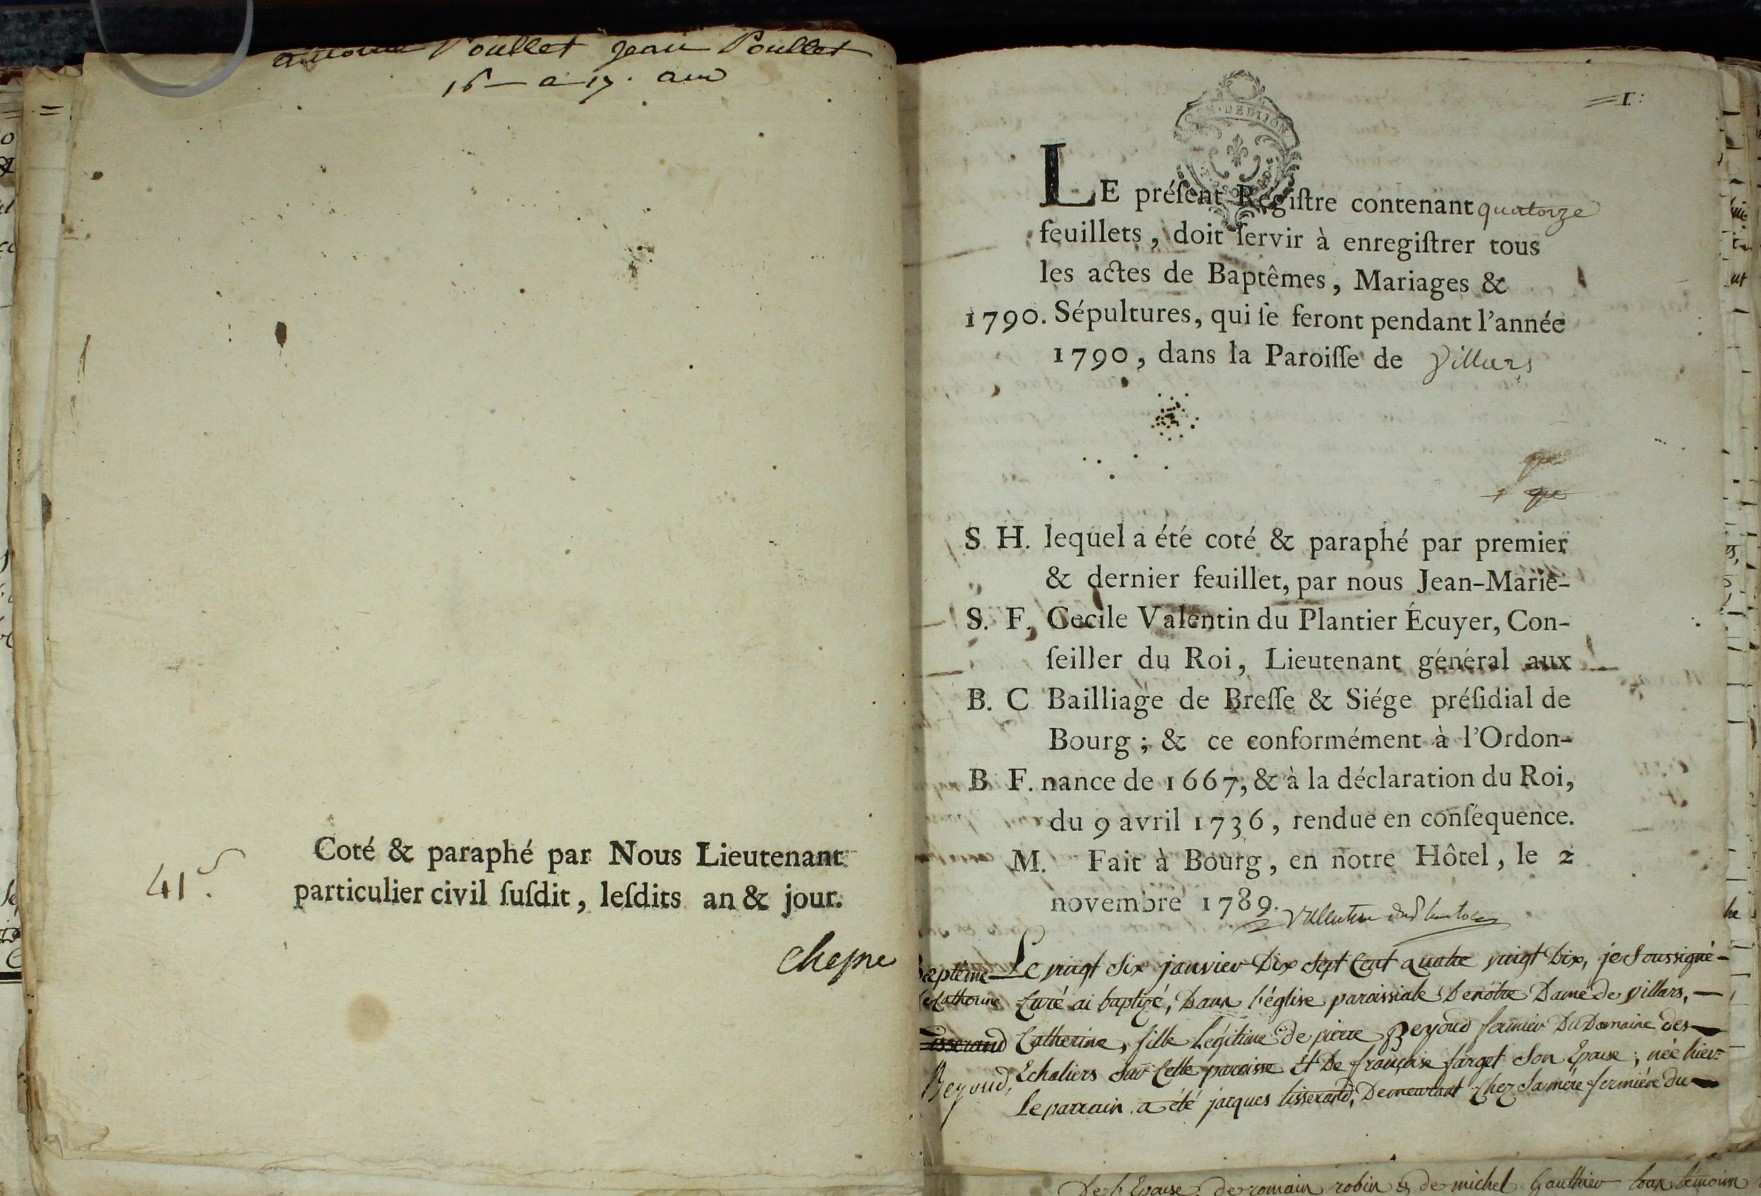 Poullet Jean Poullet
16 - a 17. ans
Coté & paraphé par Nous Lieutenant
particulier civil ſuſdit, leſdits an & jour.
41
=1:
LE préſent Régiſtre contenant quatorze
feuillets, doit ſervir à enregiſtrer tous
les actes de Baptêmes, Mariages &
1790. Sépultures, qui ſe feront pendant l'année
1790, dans la Paroiſſe de Villars
S H. lequel a été coté & paraphé par premier
& dernier feuillet, par nous Jean-Marie-
S. F. Cecile Valentin du Plantier Écuyer, Con-
ſeiller du Roi, Lieutenant général aux
B. C Bailliage de Breſſe & Siége préſidial de
Bourg; & ce conformément à l'Ordon-
B F. nance de 1667, & à la déclaration du Roi,
du 9 avril 1736, rendue en conſéquence.
M. Fait à Bourg, en notre Hôtel, le 2
novembre 1789.
Le vingt six janvier Dix sept Cent quatre vingt Dix, je soussigné
Curé ai baptizé, Dans l'église paroissiale De notre Dame de villars,
Catherine, fille légitime de pierre Beyoud fermier Du Domaine des
Echaliers sur Cette paroisse Et De françoise farget Son Epouse, née hier
Le parrain a été jacques tisserand, Demeurant chez Sa mère fermière du
Baptême
Catherine
Beyoud,
De l'Epouse, de romain robin & de michel Gauthier tous témoins